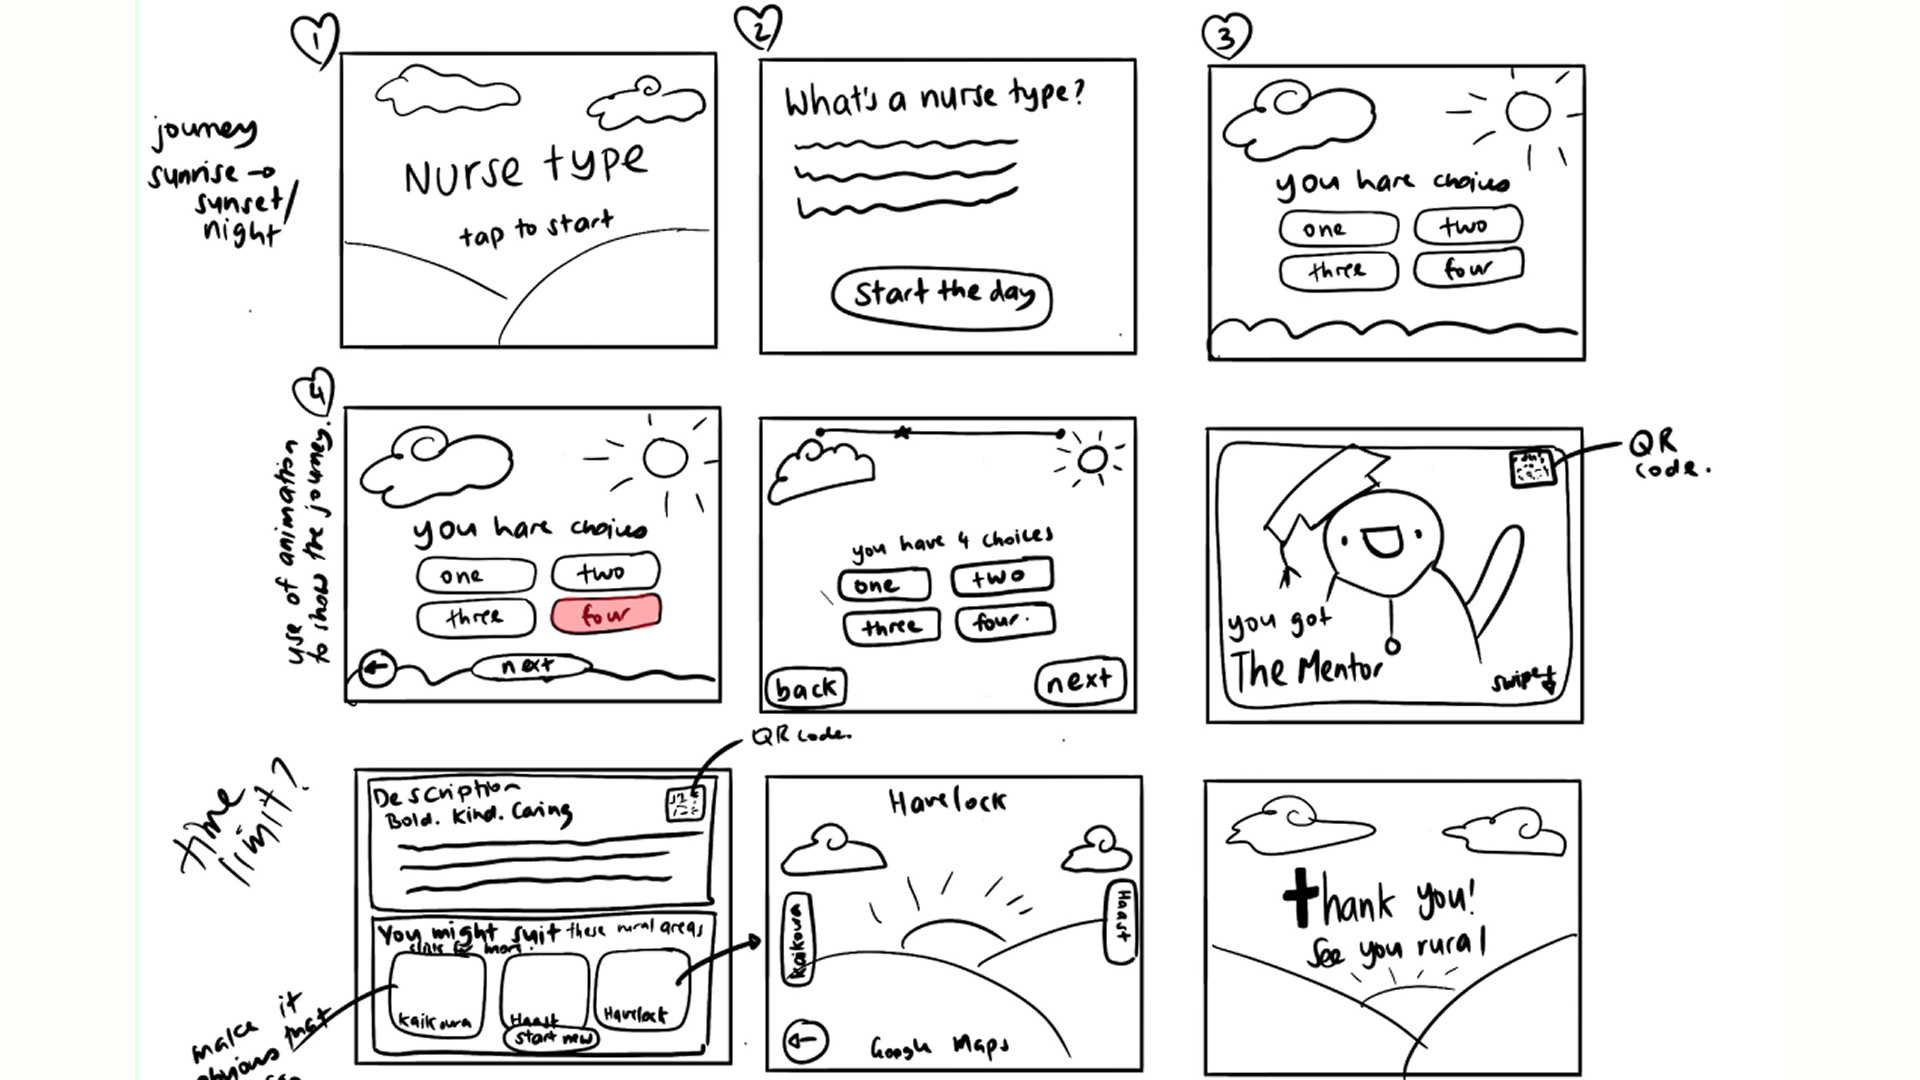 1
journey
sunrise →
sunset/
night
Nurse type
tap to start
2
What's a nurse type?
Start the day
3
you have choices
one
two
three
four
4
use of animation
to show the journey.
you have choices
one
two
three
four
←
next
you have 4 choices
one
two
three
four.
back
next
QR
code.
you got
The Mentor
swipe
time
limit?
QR code.
Description
Bold. Kind. Caring
You might suit these rural areas
kaikoura
Haast
Havelock
start new
make it
obvious that
Havelock
kaikoura
Haast
←
Google Maps
Thank you!
See you rural